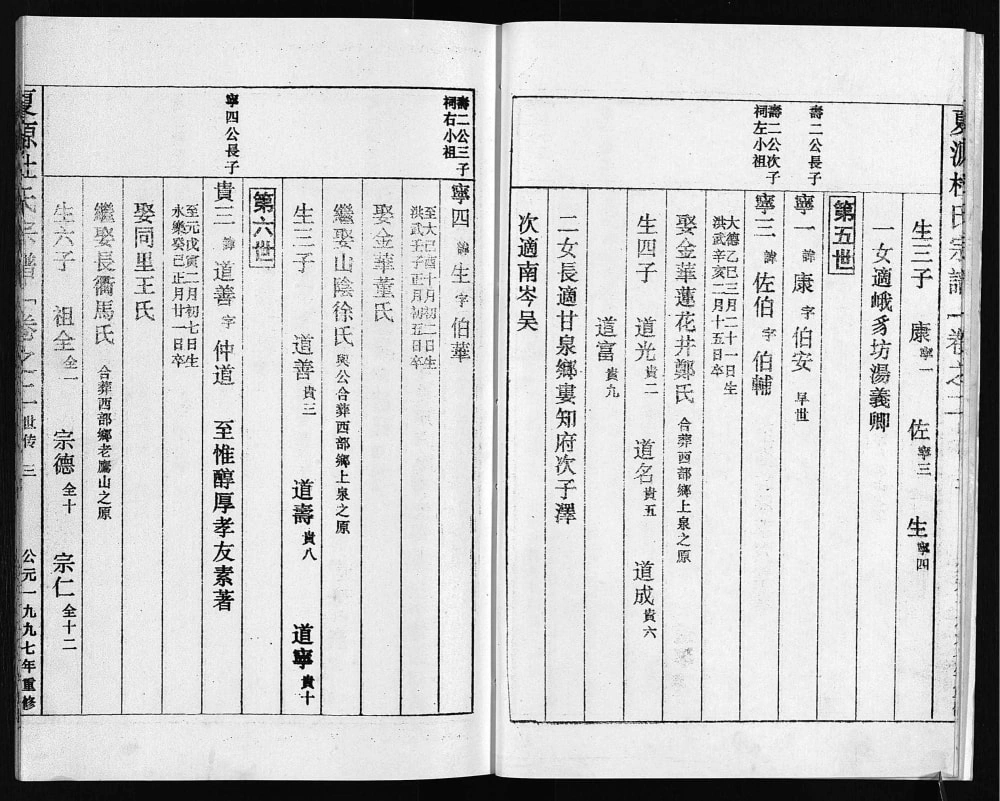 生三子 康寧一 佐寧三 生寧四
一女適峨豸坊湯義卿
第五世
壽二公長子
寧一 諱 康 字 伯安 早世
壽二公次子
祠左小祖
寧三 諱 佐伯 字 伯輔
大德乙巳三月二十一日生
洪武辛亥二月十五日卒
娶金華蓮花井鄭氏 合葬西部鄉上泉之原
生四子 道光貴二 道名貴五 道成貴六
道富貴九
二女長適甘泉鄉婁知府次子澤
次適南岑吴
壽二公三子
祠右小祖
寧四 諱 生 字 伯華
至大己酉十月初二日生
洪武壬子正月初五日卒
娶金華董氏
繼娶山陰徐氏 與公合葬西部鄉上泉之原
生三子 道善貴三 道壽貴八 道寧貴十
第六世
寧四公長子
貴三 諱 道善 字 仲道 至惟醇厚孝友素著
至元戊寅二月初七日生
永樂癸己正月廿一日卒
娶同里王氏
繼娶長衢馬氏 合葬西部鄉老鷹山之原
生六子 祖全全一 宗德全十 宗仁全十二
夏源杜氏宗譜 卷之二 世传 三 公元一九九七年重修